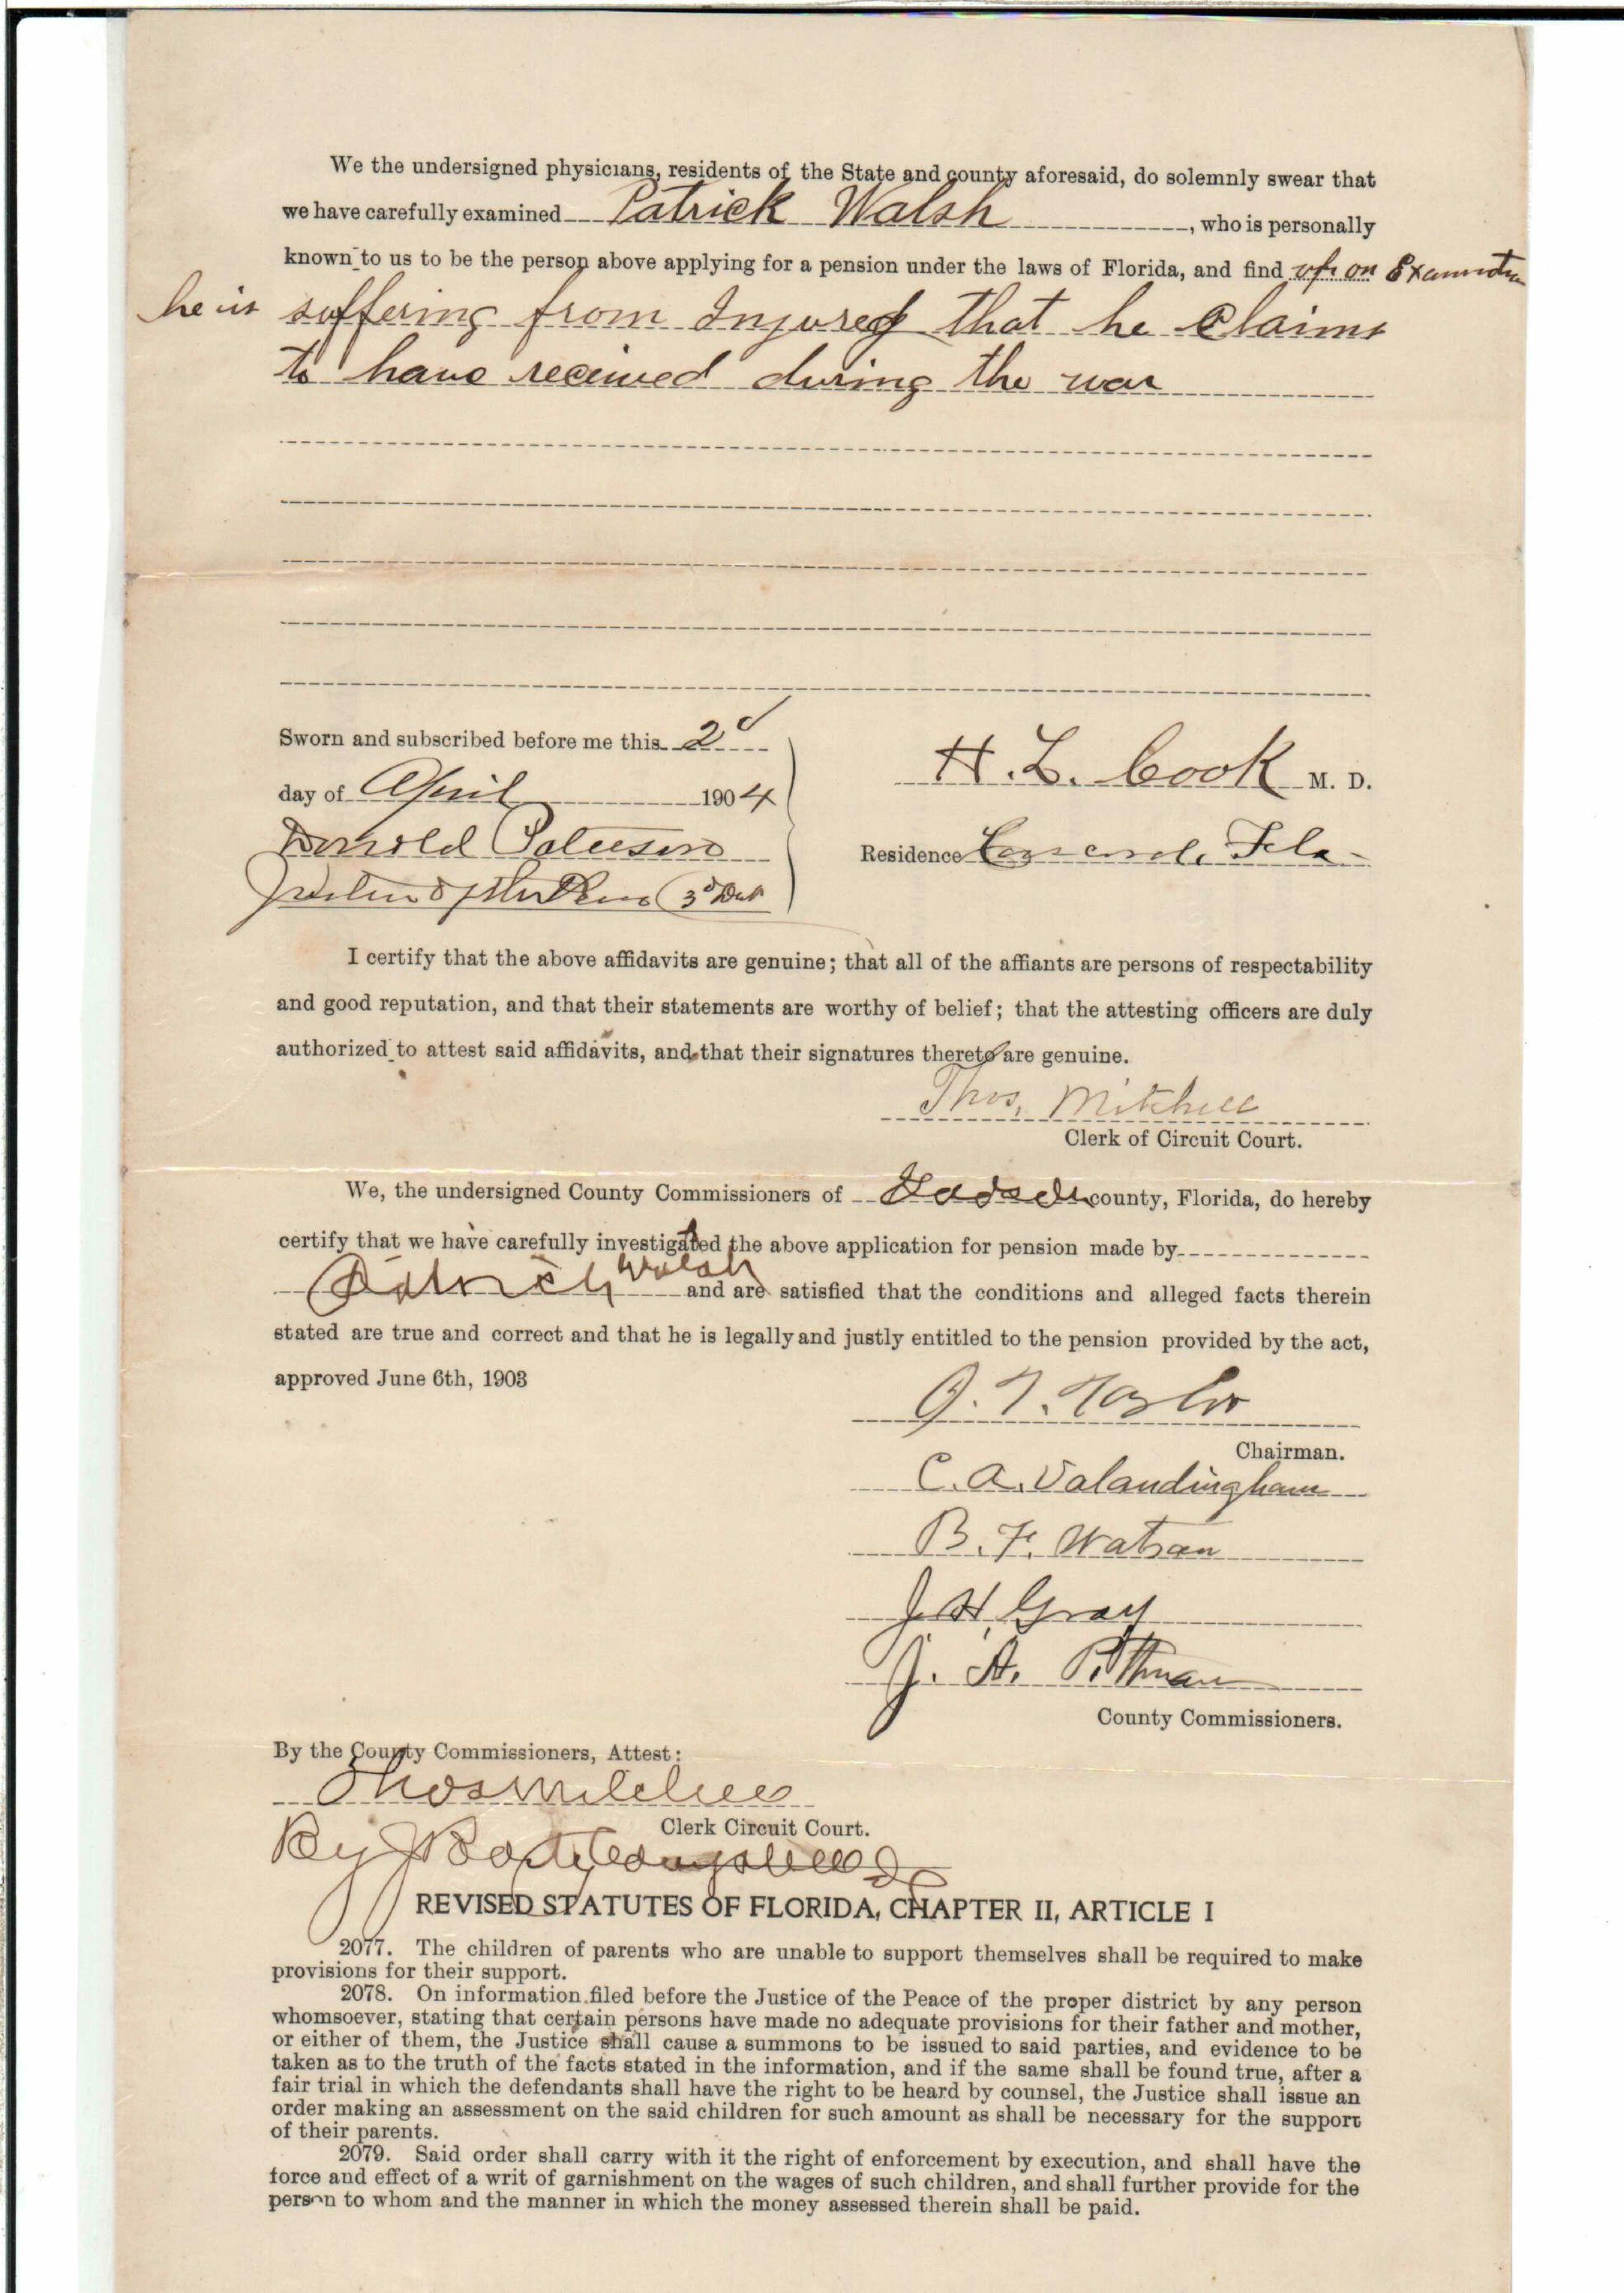 We the undersigned physicians, residents of the State and county aforesaid, do solemnly swear that
we have carefully examined Patrick Walsh, who is personally
known to us to be the person above applying for a pension under the laws of Florida, and find up on
he is suffering from Injured that he claims
to have received during the war
Sworn and subscribed before me this 2d
day of April 1904
H. L. Cook M. D.
Donold
Residence Concord, Fla
3d Dist
I certify that the above affidavits are genuine; that all of the affiants are persons of respectability
and good reputation, and that their statements are worthy of belief; that the attesting officers are duly
authorized to attest said affidavits, and that their signatures thereto are genuine.
Thos. Mitchell
Clerk of Circuit Court.
We, the undersigned County Commissioners of Gadsden county, Florida, do hereby
certify that we have carefully investigated the above application for pension made by
Patrick Walsh and are satisfied that the conditions and alleged facts therein
stated are true and correct and that he is legally and justly entitled to the pension provided by the act,
approved June 6th, 1903
Chairman.
C. A. Valandingham
B. F. Watson
J. H. Gray
J. A. Pittman
County Commissioners.
By the County Commissioners, Attest:
Thos Mitchell
Clerk Circuit Court.
By
REVISED STATUTES OF FLORIDA, CHAPTER II, ARTICLE I
2077. The children of parents who are unable to support themselves shall be required to make
provisions for their support.
2078. On information filed before the Justice of the Peace of the proper district by any person
whomsoever, stating that certain persons have made no adequate provisions for their father and mother,
or either of them, the Justice shall cause a summons to be issued to said parties, and evidence to be
taken as to the truth of the facts stated in the information, and if the same shall be found true, after a
fair trial in which the defendants shall have the right to be heard by counsel, the Justice shall issue an
order making an assessment on the said children for such amount as shall be necessary for the support
of their parents.
2079. Said order shall carry with it the right of enforcement by execution, and shall have the
force and effect of a writ of garnishment on the wages of such children, and shall further provide for the
person to whom and the manner in which the money assessed therein shall be paid.